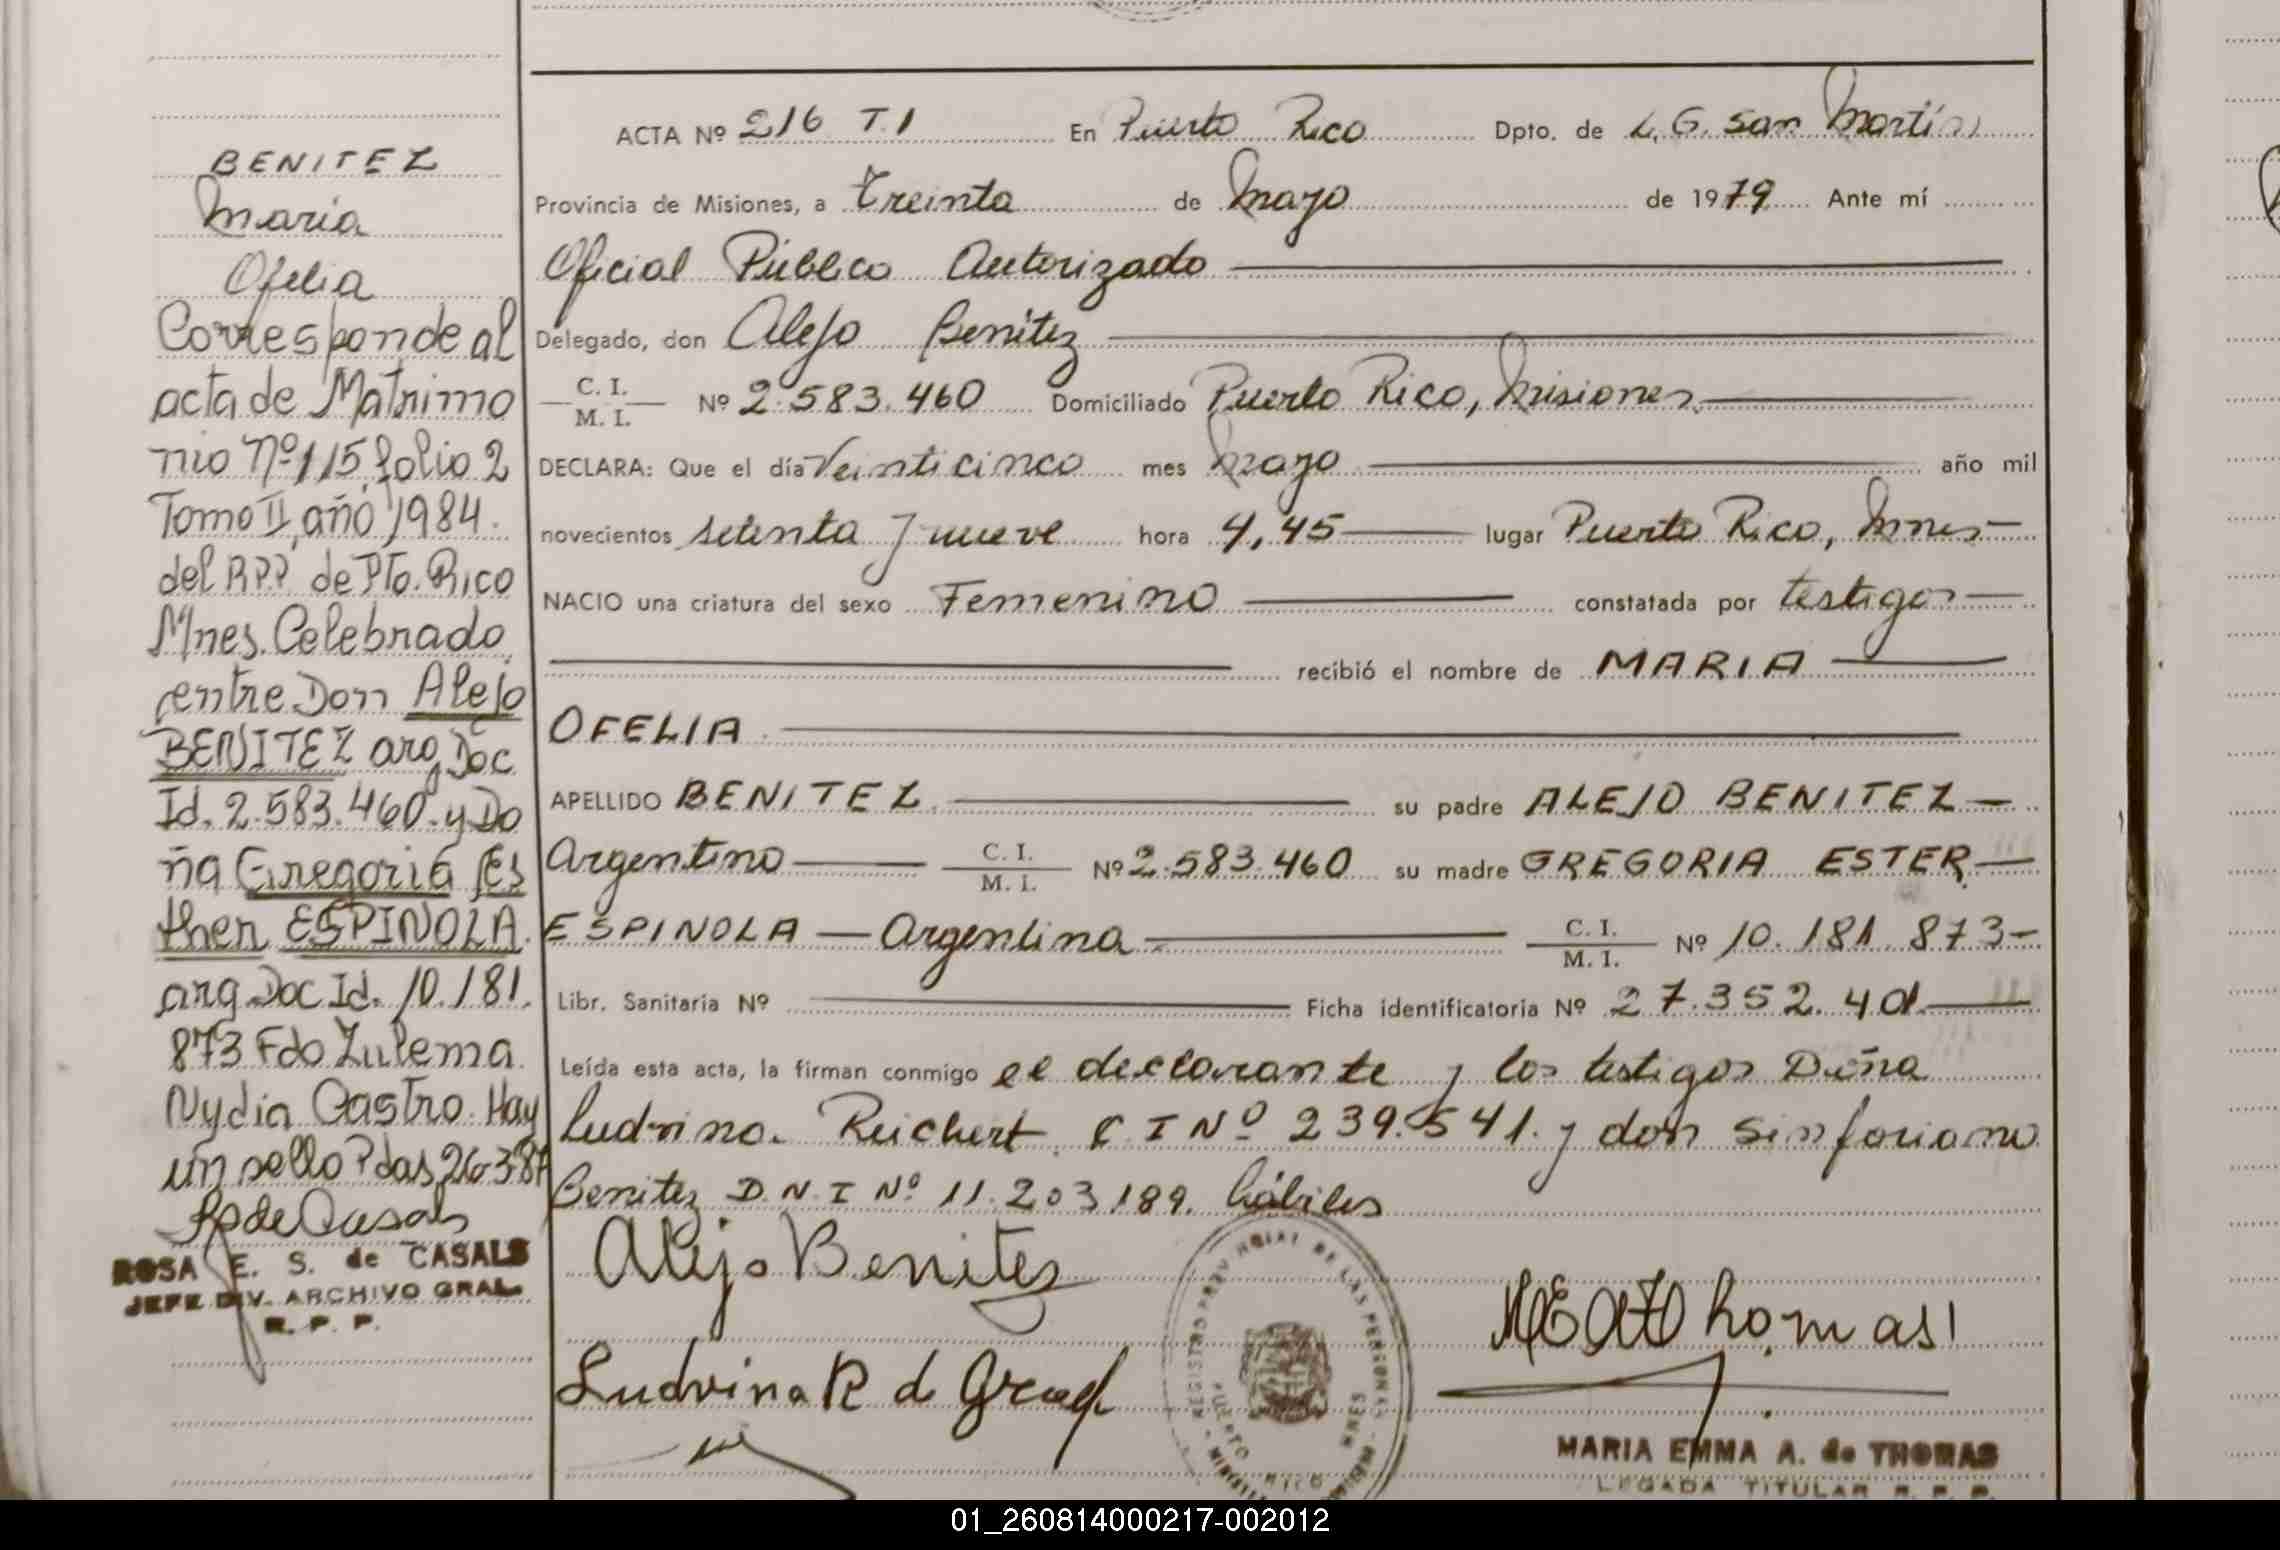 BENITEZ
Maria
Ofelia
Corresponde al
acta de Matrimo
nio Nº 115 folio 2
Tomo II, año 1984.
del R.P.P. de Pto. Rico
Mnes. Celebrado
entre Don Alejo
BENITEZ arg. Doc
Id. 2.583.460 - y Do
ña Gregoria Es
ther ESPINOLA
arg. Doc Id. 10.181.
873 Fdo Zulema
Nydia Castro. Hay
un sello Pdas 26-3-87
ROSA E. S. de CASALS
JEFE DIV. ARCHIVO GRAL.
R. P. P.
ACTA Nº 216 T.1 En Puerto Rico Dpto. de L. G. San Martín
Provincia de Misiones, a treinta de Mayo de 1979 Ante mí
Oficial Público Autorizado
Delegado, don Alejo Benitez
C. I. / M. I. Nº 2.583.460 Domiciliado Puerto Rico, Misiones
DECLARA: Que el día Veinticinco mes Mayo año mil
novecientos setenta y nueve hora 4,45 lugar Puerto Rico, Mnes
NACIO una criatura del sexo Femenino constatada por testigos
recibió el nombre de MARIA
OFELIA
APELLIDO BENITEZ su padre ALEJO BENITEZ
Argentino C. I. / M. I. Nº 2.583.460 su madre GREGORIA ESTER
ESPINOLA — Argentina C. I. / M. I. Nº 10.181.873
Libr. Sanitaria Nº Ficha identificatoria Nº 27.352.401
Leída esta acta, la firman conmigo el declarante y los testigos Doña
Ludvina Reichert C I Nº 239.541. y don Sinforiano
Benitez D.N.I Nº 11.203.189. hábiles
Alejo Benitez
Ludvina R de
REGISTRO PROVINCIAL DE LAS PERSONAS
PUERTO RICO MNES
MARIA EMMA A. de THOMAS
LEGADA TITULAR R. P. P.
01_260814000217-002012